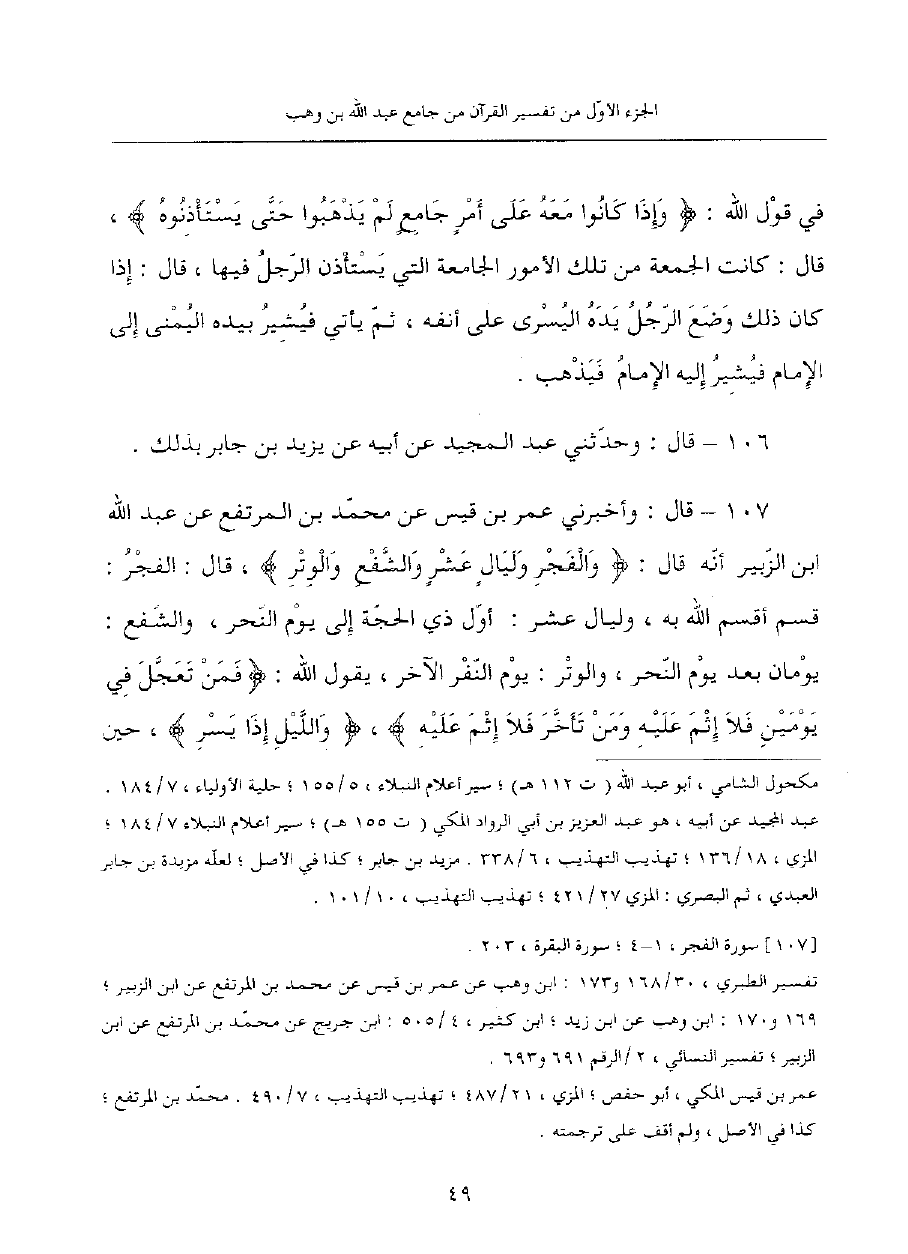 الجزء الأوّل من تفسير القرآن من جامع عبد الله بن وهب
في قوْل الله : ﴿ وَإِذَا كَانُوا مَعَهُ عَلَى أَمْرٍ جَامِعٍ لَمْ يَذْهَبُوا حَتَّى يَسْتَأْذِنُوهُ ﴾ ،
قال : كانت الجمعة من تلك الأمور الجامعة التي يَسْتأذن الرّجلُ فيها ، قال : إذا
كان ذلك وَضَعَ الرّجُلُ يَدَهُ اليُسْرى على أنفه ، ثمّ يأتي فيُشيرُ بيده اليُمْنى إلى
الإمام فيُشيرُ إليه الإمامُ فَيَذْهب .
١٠٦ – قال : وحدّثني عبد المجيد عن أبيه عن يزيد بن جابر بذلك .
١٠٧ – قال : وأخبرني عمر بن قيس عن محمّد بن المرتفع عن عبد الله
ابن الزّبير أنّه قال : ﴿ وَالْفَجْرِ وَلَيَالٍ عَشْرٍ وَالشَّفْعِ وَالْوِتْرِ ﴾ ، قال : الفجْرُ :
قسم أقسم الله به ، وليال عشر : أوّل ذي الحجّة إلى يوْم النّحر ، والشّفع :
يوْمان بعد يوْم النّحر ، والوتْر : يوْم النّفْر الآخر ، يقول الله : ﴿ فَمَنْ تَعَجَّلَ فِي
يَوْمَيْنِ فَلاَ إِثْمَ عَلَيْهِ وَمَنْ تَأَخَّرَ فَلاَ إِثْمَ عَلَيْهِ ﴾ ، ﴿ وَاللَّيْلِ إِذَا يَسْرِ ﴾ ، حين
مكحول الشامي ، أبو عبد الله ( ت ١١٢ هـ) ؛ سير أعلام النبلاء ، ١٥٥/٥ ؛ حلية الأولياء ، ١٨٤/٧ .
عبد المجيد عن أبيه ، هو عبد العزيز بن أبي الرواد المكي ( ت ١٥٥ هـ) ؛ سير أعلام النبلاء ١٨٤/٧ ؛
المزي ، ١٣٦/١٨ ؛ تهذيب التهذيب ، ٣٣٨/٦ . مزيد بن جابر ؛ كذا في الأصل ؛ لعلّه مزيدة بن جابر
العبدي ، ثم البصري : المزي ٤٢١/٢٧ ؛ تهذيب التهذيب ، ١٠١/١٠ .
[١٠٧] سورة الفجر ، ١–٤ ؛ سورة البقرة ، ٢٠٣ .
تفسير الطبري ، ١٦٨/٣٠ و١٧٣ : ابن وهب عن عمر بن قيس عن محمد بن المرتفع عن ابن الزبير ؛
١٦٩ و١٧٠ : ابن وهب عن ابن زيد ؛ ابن كثير ، ٥٠٥/٤ : ابن جريج عن محمّد بن المرتفع عن ابن
الزبير ؛ تفسير النسائي ، ٢/الرقم ٦٩١ و٦٩٣ .
عمر بن قيس المكي ، أبو حفص ؛ المزي ، ٤٨٧/٢١ ؛ تهذيب التهذيب ، ٤٩٠/٧ . محمّد بن المرتفع ؛
كذا في الأصل ، ولم أقف على ترجمته .
٤٩